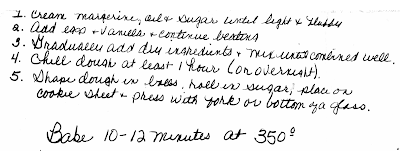 1. Cream margerine, oil & sugar until light & fluffy
2. Add egg + vanilla + continue beating
3. Gradually add dry ingredients + mix until combined well.
4. Chill dough at least 1 hour (or overnight).
5. Shape dough in balls, roll in sugar; place on
cookie sheet + press with fork or bottom of a glass.
Bake 10-12 minutes at 350°